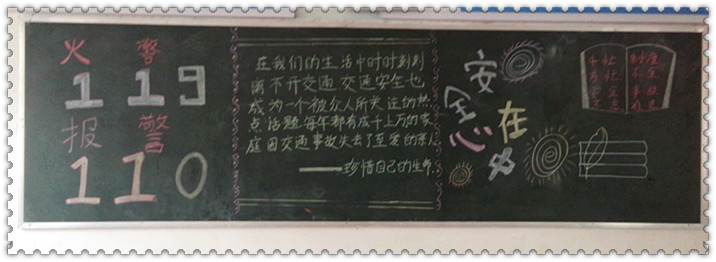 火警
119
报警
110
在我们的生活中时时刻刻
离不开交通 交通安全也
成为一个被众人所关注的热
点话题.每年都有成千上万的家
庭因交通事故失去了至爱的亲人
——珍惜自己的生命
安全
在心